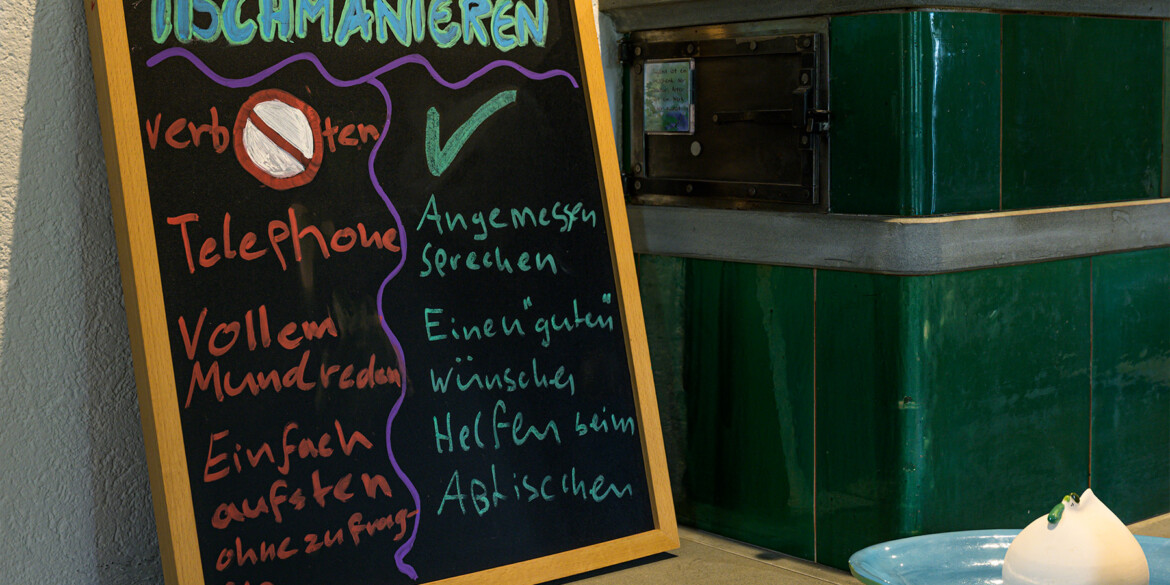 TISCHMANIEREN
Verboten
Telephone
Vollem
Mund reden
Einfach
aufsten
ohne zu frag-
Angemessen
sprechen
Einen "guten"
wünschen
Helfen beim
Abtischen